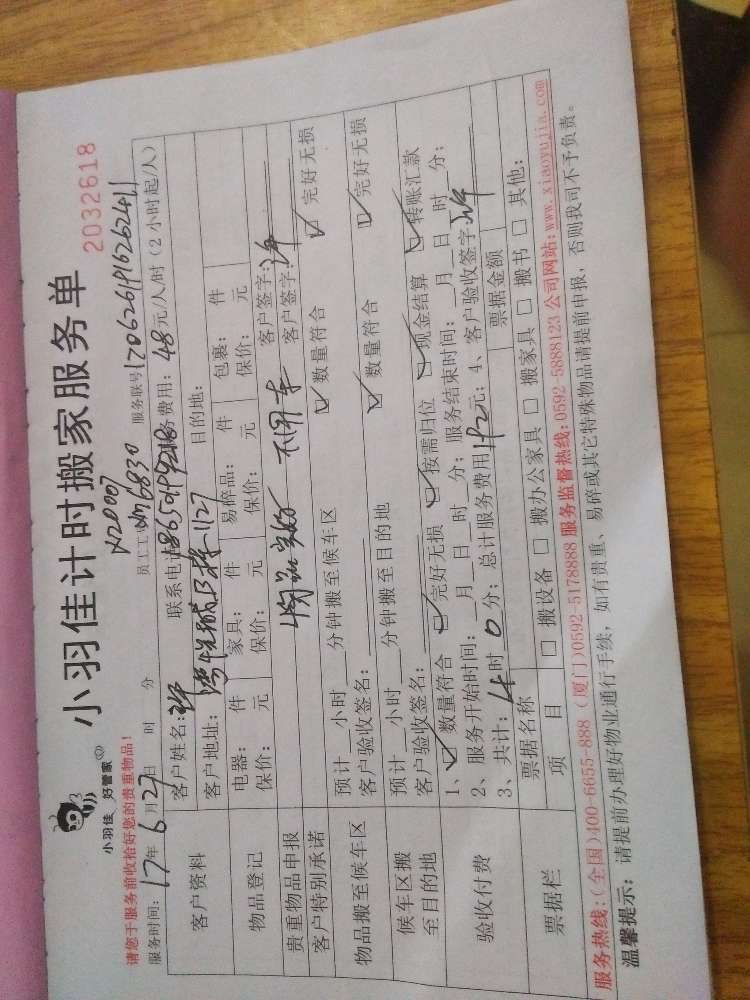 小羽佳 好管家
小羽佳计时搬家服务单
2032618
请您于服务前收拾好您的贵重物品!
N20007
服务时间: 17年 6月 27日 时 分
员工工 Nn6830 服务联号 170626191626241
客户资料
客户姓名: 联系电话 18650199218 服务费用: 48元/人/时 (2小时起/人)
客户地址: 湾悦城B栋1127 目的地:
物品登记
电器: 件 家具: 件 易碎品: 件 包裹: 件
保价: 元 保价: 元 保价: 元 保价: 元
贵重物品申报 客户签字:
客户特别承诺 物品当好 不用车 客户签字:
物品搬至候车区
预计 小时 分钟搬至候车区 ☑ 数量符合 ☑ 完好无损
客户验收签名:
候车区搬
至目的地
预计 小时 分钟搬至目的地 ☑ 数量符合 ☑ 完好无损
客户验收签名:
验收付费
1、☑ 数量符合 ☑ 完好无损 ☑ 按需归位 ☑ 现金结算 ☑ 转账汇款
2、服务开始时间: 月 日 时 分; 服务结束时间: 月 日 时 分;
3、共计: 4时 0分; 总计服务费用 192元; 4、客户验收签字:
票据栏
票据名称 票据金额
项 目 □ 搬设备 □ 搬办公家具 □ 搬家具 □ 搬书 □ 其他:
服务热线:(全国)400-6655-888 (厦门)0592-5178888 服务监督热线:0592-5888123 公司网站:www.xiaoyujia.com
温馨提示: 请提前办理好物业通行手续, 如有贵重、易碎或其它特殊物品请提前申报, 否则我司不予负责。